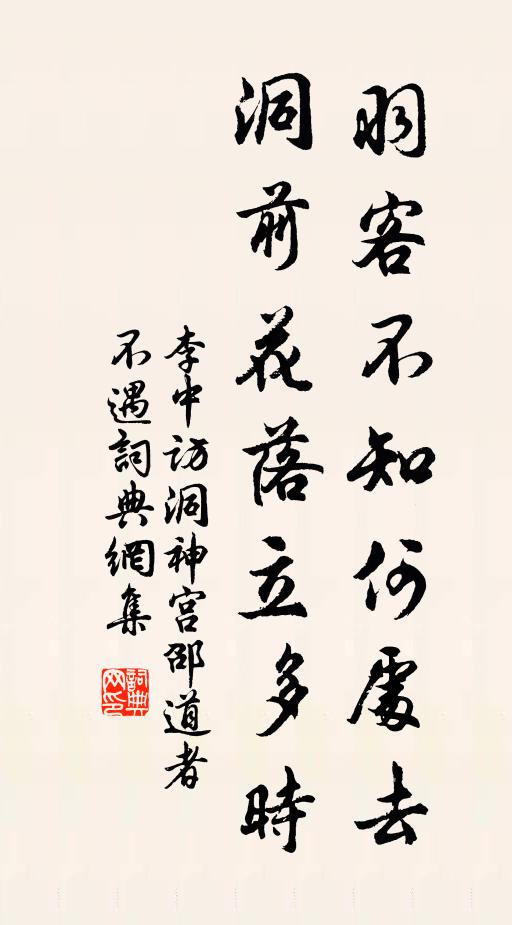 羽客不知何處去
洞前花落立多時
李中訪洞神宮邵道者
不遇詞典網集
詞典
网印